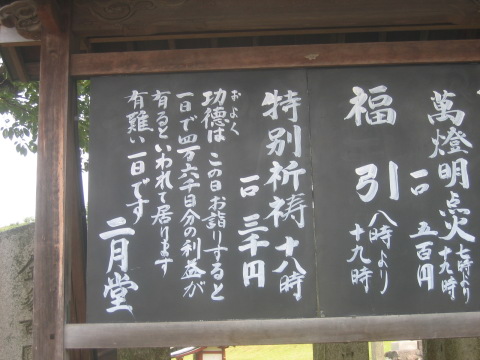 萬燈明点火 七時より
十九時
一口 五百円
福引 八時より
十九時
特別祈祷 十八時
一口 三千円
およく
功徳は この日お詣りすると
一日で四万六千日分の利益が
有るといわれて居ります
有難い一日です
二月堂